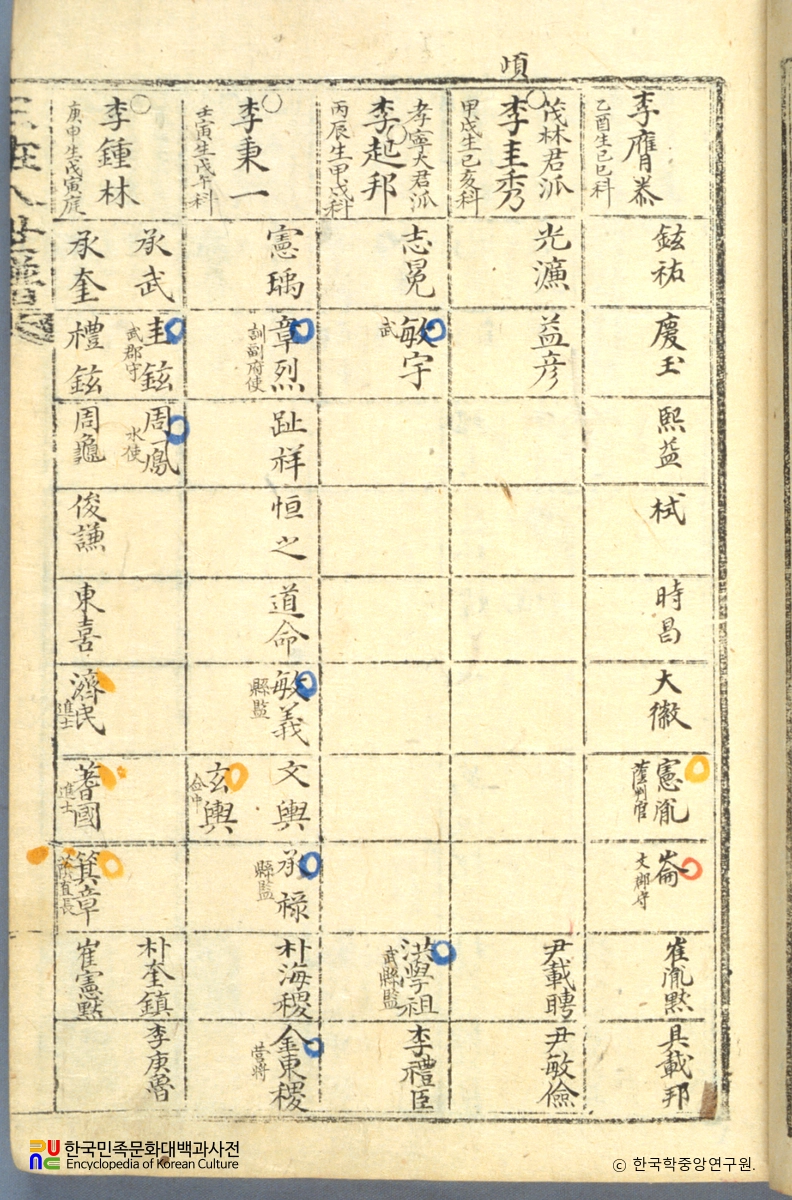 頃
李膺泰
乙酉生己巳科
鉉祐
慶玉
熙益
栻
時昌
大徽
憲胤
蔭判官
崙
文郡守
崔胤黙
具載邦
茂林君派
李圭秀
甲戌生己亥科
光濂
益彦
尹載聘
尹敏儉
孝寧大君派
李起邦
丙辰生甲戌科
志冕
敏宇
武
洪學祖
武縣監
李禮臣
李秉一
壬寅生戊午科
憲瑀
章烈
訓副府使
趾祥
恒之
道命
敏義
縣監
文輿
玄輿
承祿
縣監
朴海稷
金東稷
营將
李鍾林
庚申生戊寅庭
承武
承奎
圭鉉
武郡守
禮鉉
周鳳
水使
周龜
俊謙
東喜
濟民
進士
蓍國
進士
箕章
直長
朴奎鎮
崔憲黙
李庚魯
한국민족문화대백과사전
Encyclopedia of Korean Culture
ⓒ 한국학중앙연구원.